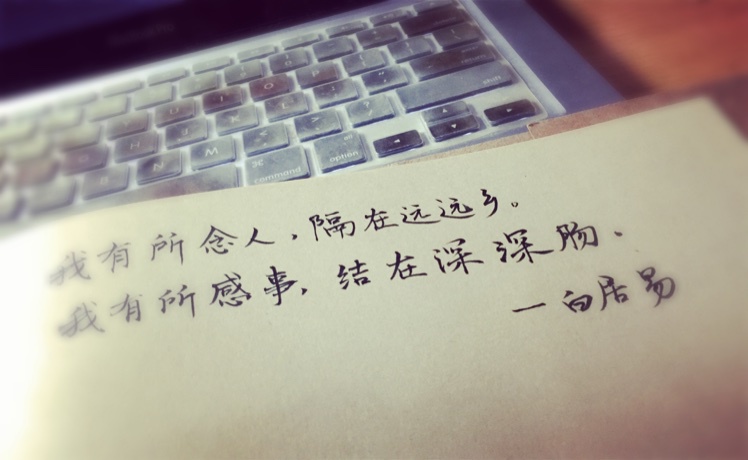 I O P
M < > ?
shift
⌘ command option
我有所念人，隔在远远乡。
我有所感事，结在深深肠、
—白居易